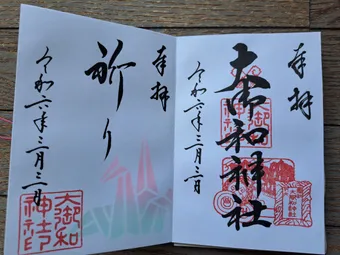 奉拝
大御和神社
令和六年三月三日
奉拝
祈り
令和六年三月三日
大御和
神社印